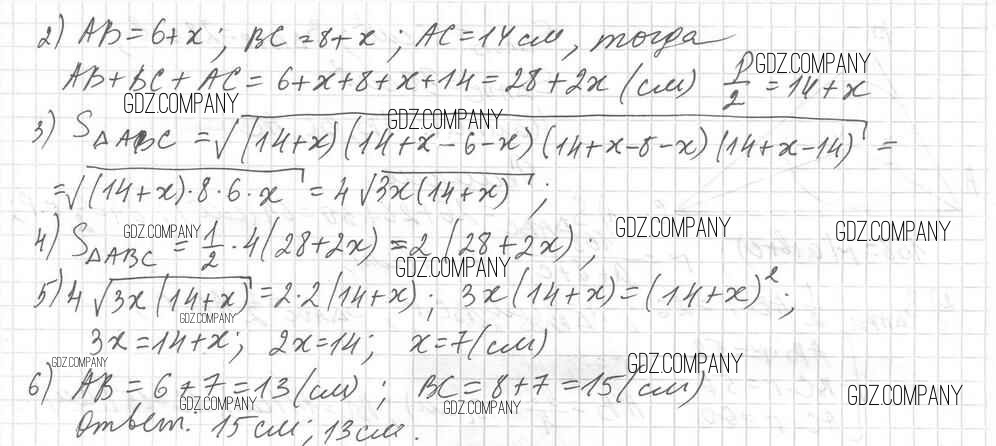 2) AB = 6+x; BC = 8+x; AC = 14 см, тогда
AB + BC + AC = 6+x+8+x+14 = 28+2x (см) p/2 = 14+x
GDZ.COMPANY
GDZ.COMPANY
GDZ.COMPANY
3) S△ABC = √((14+x)(14+x-6-x)(14+x-8-x)(14+x-14)) =
= √((14+x)·8·6·x) = 4√(3x(14+x));
GDZ.COMPANY
GDZ.COMPANY
GDZ.COMPANY
4) S△ABC = 1/2 · 4(28+2x) = 2(28+2x);
GDZ.COMPANY
5) 4√(3x(14+x)) = 2·2(14+x); 3x(14+x) = (14+x)²;
GDZ.COMPANY
3x = 14+x; 2x = 14; x = 7 (см)
GDZ.COMPANY
GDZ.COMPANY
6) AB = 6+7 = 13 (см); BC = 8+7 = 15 (см)
GDZ.COMPANY
GDZ.COMPANY
GDZ.COMPANY
Ответ. 15 см; 13 см.